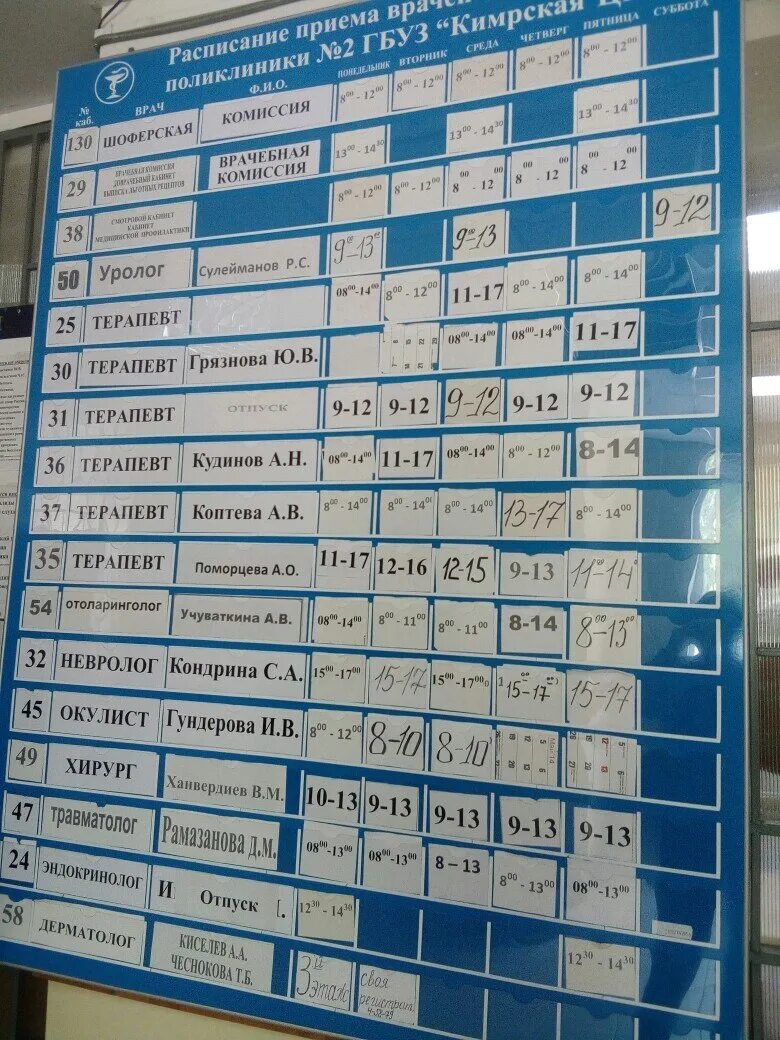 Расписание приема врачей
поликлиники №2 ГБУЗ "Кимрская
№ каб. ВРАЧ Ф.И.О. ПОНЕДЕЛЬНИК ВТОРНИК СРЕДА ЧЕТВЕРГ ПЯТНИЦА СУББОТА
130 ШОФЕРСКАЯ КОМИССИЯ 8⁰⁰ - 12⁰⁰ 8⁰⁰ - 12⁰⁰ 8⁰⁰ - 12⁰⁰ 8⁰⁰ - 12⁰⁰ 8⁰⁰ - 12⁰⁰
29 ВРАЧЕБНАЯ КОМИССИЯ ДОВРАЧЕБНЫЙ КАБИНЕТ ВЫПИСКА ЛЬГОТНЫХ РЕЦЕПТОВ ВРАЧЕБНАЯ КОМИССИЯ 13⁰⁰ - 14³⁰ 13⁰⁰ - 14³⁰ 13⁰⁰ - 14³⁰
38 СМОТРОВОЙ КАБИНЕТ КАБИНЕТ МЕДИЦИНСКОЙ ПРОФИЛАКТИКИ 8⁰⁰ - 12⁰⁰ 8⁰⁰ - 12⁰⁰ 8⁰⁰ - 12⁰⁰ 8⁰⁰ - 12⁰⁰ 8⁰⁰ - 12⁰⁰
50 Уролог Сулейманов Р.С. 9⁰⁰-13⁰⁰ 9⁰⁰-13 9-12
25 ТЕРАПЕВТ 08⁰⁰-14⁰⁰ 8⁰⁰ - 12⁰⁰ 11-17 8⁰⁰ - 14⁰⁰ 8⁰⁰ - 14⁰⁰
30 ТЕРАПЕВТ Грязнова Ю.В. 08⁰⁰-14⁰⁰ 08⁰⁰-14⁰⁰ 11-17
31 ТЕРАПЕВТ ОТПУСК 9-12 9-12 9-12 9-12 9-12
36 ТЕРАПЕВТ Кудинов А.Н. 08⁰⁰-14⁰⁰ 11-17 08⁰⁰-14⁰⁰ 8⁰⁰ - 12⁰⁰ 8-14
37 ТЕРАПЕВТ Коптева А.В. 8⁰⁰ - 14⁰⁰ 8⁰⁰ - 14⁰⁰ 8⁰⁰ - 14⁰⁰ 13-17 8⁰⁰ - 14⁰⁰
35 ТЕРАПЕВТ Поморцева А.О. 11-17 12-16 12-15 9-13 11⁰⁰-14⁰⁰
54 отоларинголог Учуваткина А.В. 08⁰⁰-14⁰⁰ 8⁰⁰ - 11⁰⁰ 8⁰⁰ - 11⁰⁰ 8-14 8⁰⁰-13⁰⁰
32 НЕВРОЛОГ Кондрина С.А. 15⁰⁰-17⁰⁰ 15-17 15⁰⁰-17⁰⁰ 15⁰⁰-17⁰⁰ 15-17
45 ОКУЛИСТ Гундерова И.В. 8⁰⁰ - 12⁰⁰ 8-10 8-10
49 ХИРУРГ Ханвердиев В.М. 10-13 9-13 9-13 9-13 9-13
47 травматолог Рамазанова Д.М. 08⁰⁰-13⁰⁰ 08⁰⁰-13⁰⁰ 8 – 13 8⁰⁰ - 13⁰⁰ 08⁰⁰-13⁰⁰
24 ЭНДОКРИНОЛОГ И Отпуск 12³⁰ - 14³⁰
58 ДЕРМАТОЛОГ КИСЕЛЕВ А.А. ЧЕСНОКОВА Т.Б. 3й этаж своя регистрат. 4-52-79 12³⁰ - 14³⁰